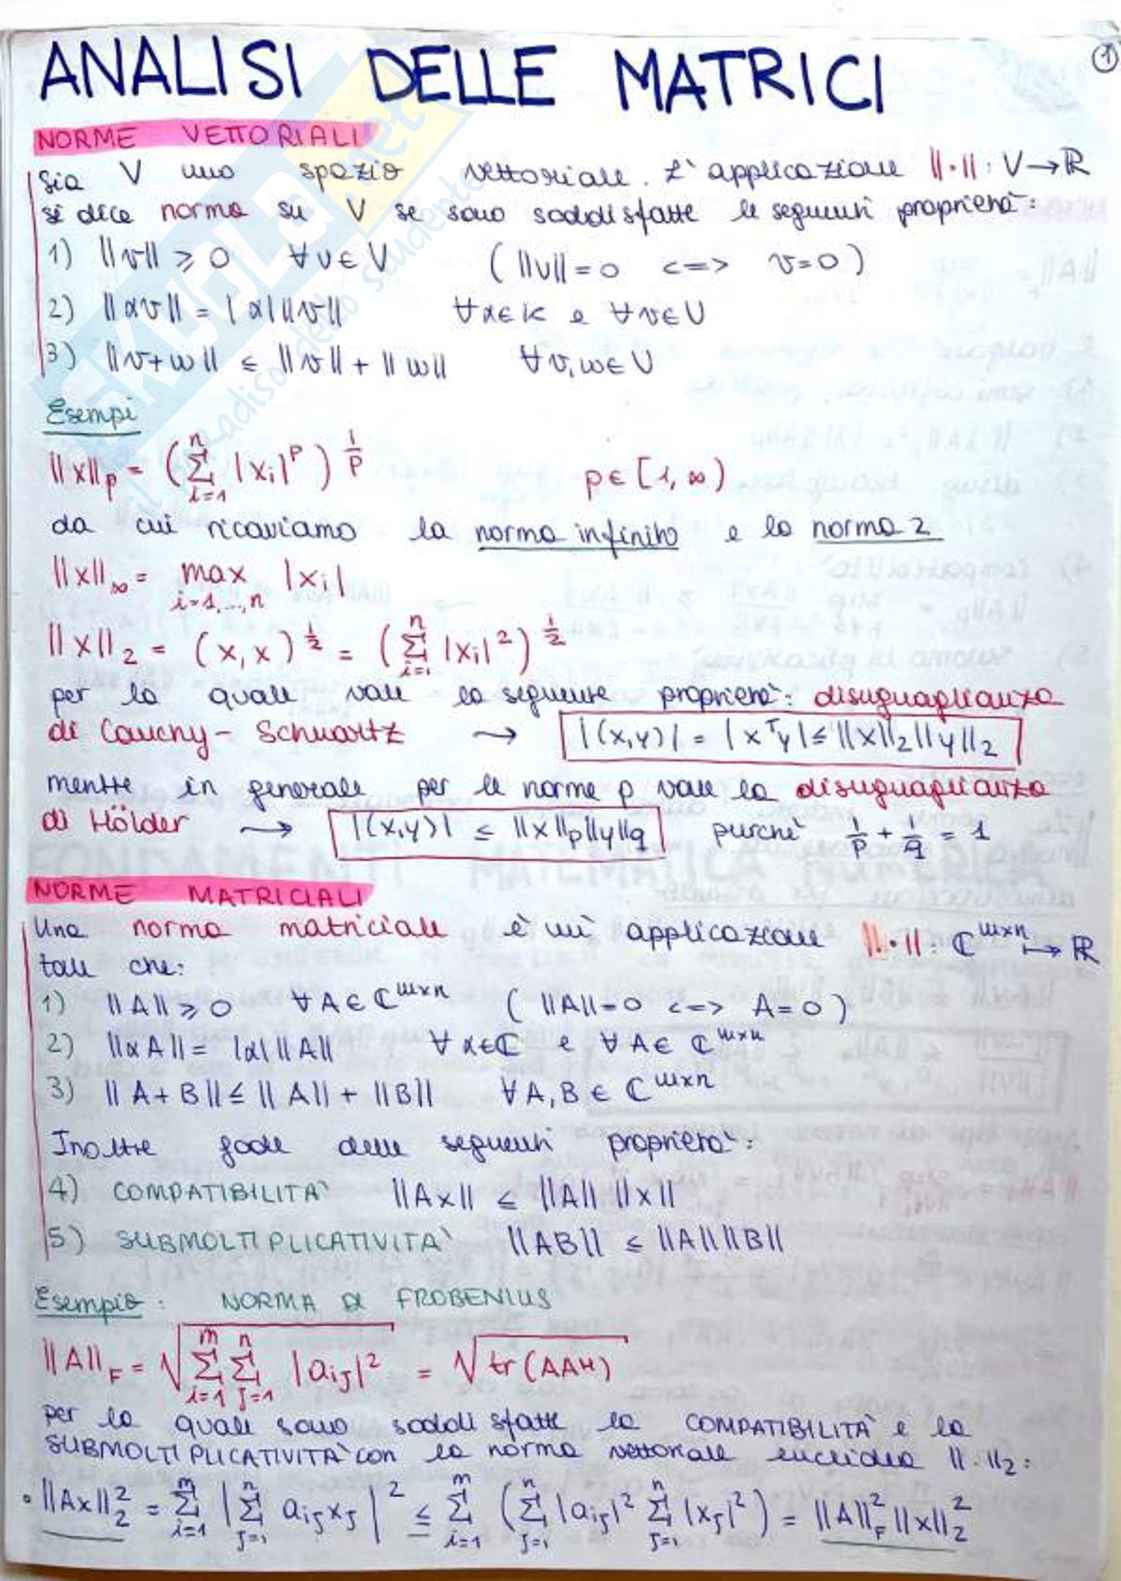 ANALISI DELLE MATRICI
1
NORME VETTORIALI
Sia V uno spazio vettoriale. L'applicazione ||·||: V→ℝ
si dice norma su V se sono soddisfatte le seguenti proprietà:
1) ||v|| ⩾ 0 ∀v∈V (||v||=0 <=> v=0)
2) ||αv|| = |α| ||v|| ∀α∈K e ∀v∈V
3) ||v+w|| ≤ ||v|| + ||w|| ∀v,w∈V
Esempi
||x||_p = (∑_{i=1}^{n} |x_i|^p)^{1/p} p∈[1,∞)
da cui ricaviamo la norma infinito e la norma 2
||x||_∞ = max_{i=1,...,n} |x_i|
||x||_2 = (x,x)^{1/2} = (∑_{i=1}^{n} |x_i|^2)^{1/2}
per la quale vale la seguente proprietà: disuguaglianza
di Cauchy-Schwartz → |(x,y)| = |x^T y| ≤ ||x||_2 ||y||_2
mentre in generale per le norme p vale la disuguaglianza
di Hölder → |(x,y)| ≤ ||x||_p ||y||_q purché 1/p + 1/q = 1
NORME MATRICIALI
Una norma matriciale è un'applicazione ||·||: ℂ^{m×n} ↦ ℝ
tale che:
1) ||A|| ⩾ 0 ∀A∈ℂ^{m×n} (||A||=0 <=> A=0)
2) ||αA|| = |α| ||A|| ∀α∈ℂ e ∀A∈ℂ^{m×n}
3) ||A+B|| ≤ ||A|| + ||B|| ∀A,B∈ℂ^{m×n}
Inoltre gode delle seguenti proprietà:
4) COMPATIBILITÀ ||Ax|| ≤ ||A|| ||x||
5) SUBMOLTIPLICATIVITÀ ||AB|| ≤ ||A|| ||B||
Esempio: NORMA DI FROBENIUS
||A||_F = √(∑_{i=1}^{m} ∑_{j=1}^{n} |a_{ij}|^2) = √(tr(AA^H))
per la quale sono soddisfatte la COMPATIBILITÀ e la
SUBMOLTIPLICATIVITÀ con la norma vettoriale euclidea ||·||_2:
• ||Ax||_2^2 = ∑_{i=1}^{m} |∑_{j=1}^{n} a_{ij}x_j|^2 ≤ ∑_{i=1}^{m} (∑_{j=1}^{n} |a_{ij}|^2 ∑_{j=1}^{n} |x_j|^2) = ||A||_F^2 ||x||_2^2
SKUOLA.net
il paradiso dello studente